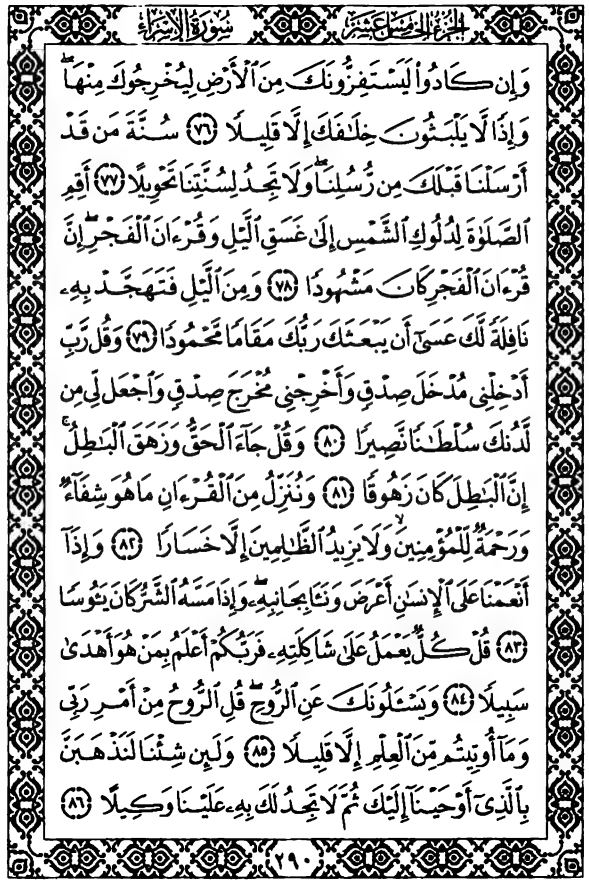 سُورَةُ الإِسْرَاءِ
الجُزْءُ الخَامِسَ عَشَرَ
وَإِن كَادُوا۟ لَيَسْتَفِزُّونَكَ مِنَ ٱلْأَرْضِ لِيُخْرِجُوكَ مِنْهَا ۖ
وَإِذًا لَّا يَلْبَثُونَ خِلَـٰفَكَ إِلَّا قَلِيلًا ﴿٧٦﴾ سُنَّةَ مَن قَدْ
أَرْسَلْنَا قَبْلَكَ مِن رُّسُلِنَا ۖ وَلَا تَجِدُ لِسُنَّتِنَا تَحْوِيلًا ﴿٧٧﴾ أَقِمِ
ٱلصَّلَوٰةَ لِدُلُوكِ ٱلشَّمْسِ إِلَىٰ غَسَقِ ٱلَّيْلِ وَقُرْءَانَ ٱلْفَجْرِ ۖ إِنَّ
قُرْءَانَ ٱلْفَجْرِ كَانَ مَشْهُودًا ﴿٧٨﴾ وَمِنَ ٱلَّيْلِ فَتَهَجَّدْ بِهِۦ
نَافِلَةً لَّكَ عَسَىٰٓ أَن يَبْعَثَكَ رَبُّكَ مَقَامًا مَّحْمُودًا ﴿٧٩﴾ وَقُل رَّبِّ
أَدْخِلْنِى مُدْخَلَ صِدْقٍ وَأَخْرِجْنِى مُخْرَجَ صِدْقٍ وَٱجْعَل لِّى مِن
لَّدُنكَ سُلْطَـٰنًا نَّصِيرًا ﴿٨٠﴾ وَقُلْ جَآءَ ٱلْحَقُّ وَزَهَقَ ٱلْبَـٰطِلُ ۚ
إِنَّ ٱلْبَـٰطِلَ كَانَ زَهُوقًا ﴿٨١﴾ وَنُنَزِّلُ مِنَ ٱلْقُرْءَانِ مَا هُوَ شِفَآءٌ
وَرَحْمَةٌ لِّلْمُؤْمِنِينَ ۙ وَلَا يَزِيدُ ٱلظَّـٰلِمِينَ إِلَّا خَسَارًا ﴿٨٢﴾ وَإِذَآ
أَنْعَمْنَا عَلَى ٱلْإِنسَـٰنِ أَعْرَضَ وَنَـَٔا بِجَانِبِهِۦ ۖ وَإِذَا مَسَّهُ ٱلشَّرُّ كَانَ يَـُٔوسًا
﴿٨٣﴾ قُلْ كُلٌّ يَعْمَلُ عَلَىٰ شَاكِلَتِهِۦ فَرَبُّكُمْ أَعْلَمُ بِمَنْ هُوَ أَهْدَىٰ
سَبِيلًا ﴿٨٤﴾ وَيَسْـَٔلُونَكَ عَنِ ٱلرُّوحِ ۖ قُلِ ٱلرُّوحُ مِنْ أَمْرِ رَبِّى
وَمَآ أُوتِيتُم مِّنَ ٱلْعِلْمِ إِلَّا قَلِيلًا ﴿٨٥﴾ وَلَئِن شِئْنَا لَنَذْهَبَنَّ
بِٱلَّذِىٓ أَوْحَيْنَآ إِلَيْكَ ثُمَّ لَا تَجِدُ لَكَ بِهِۦ عَلَيْنَا وَكِيلًا ﴿٨٦﴾
٢٩٠